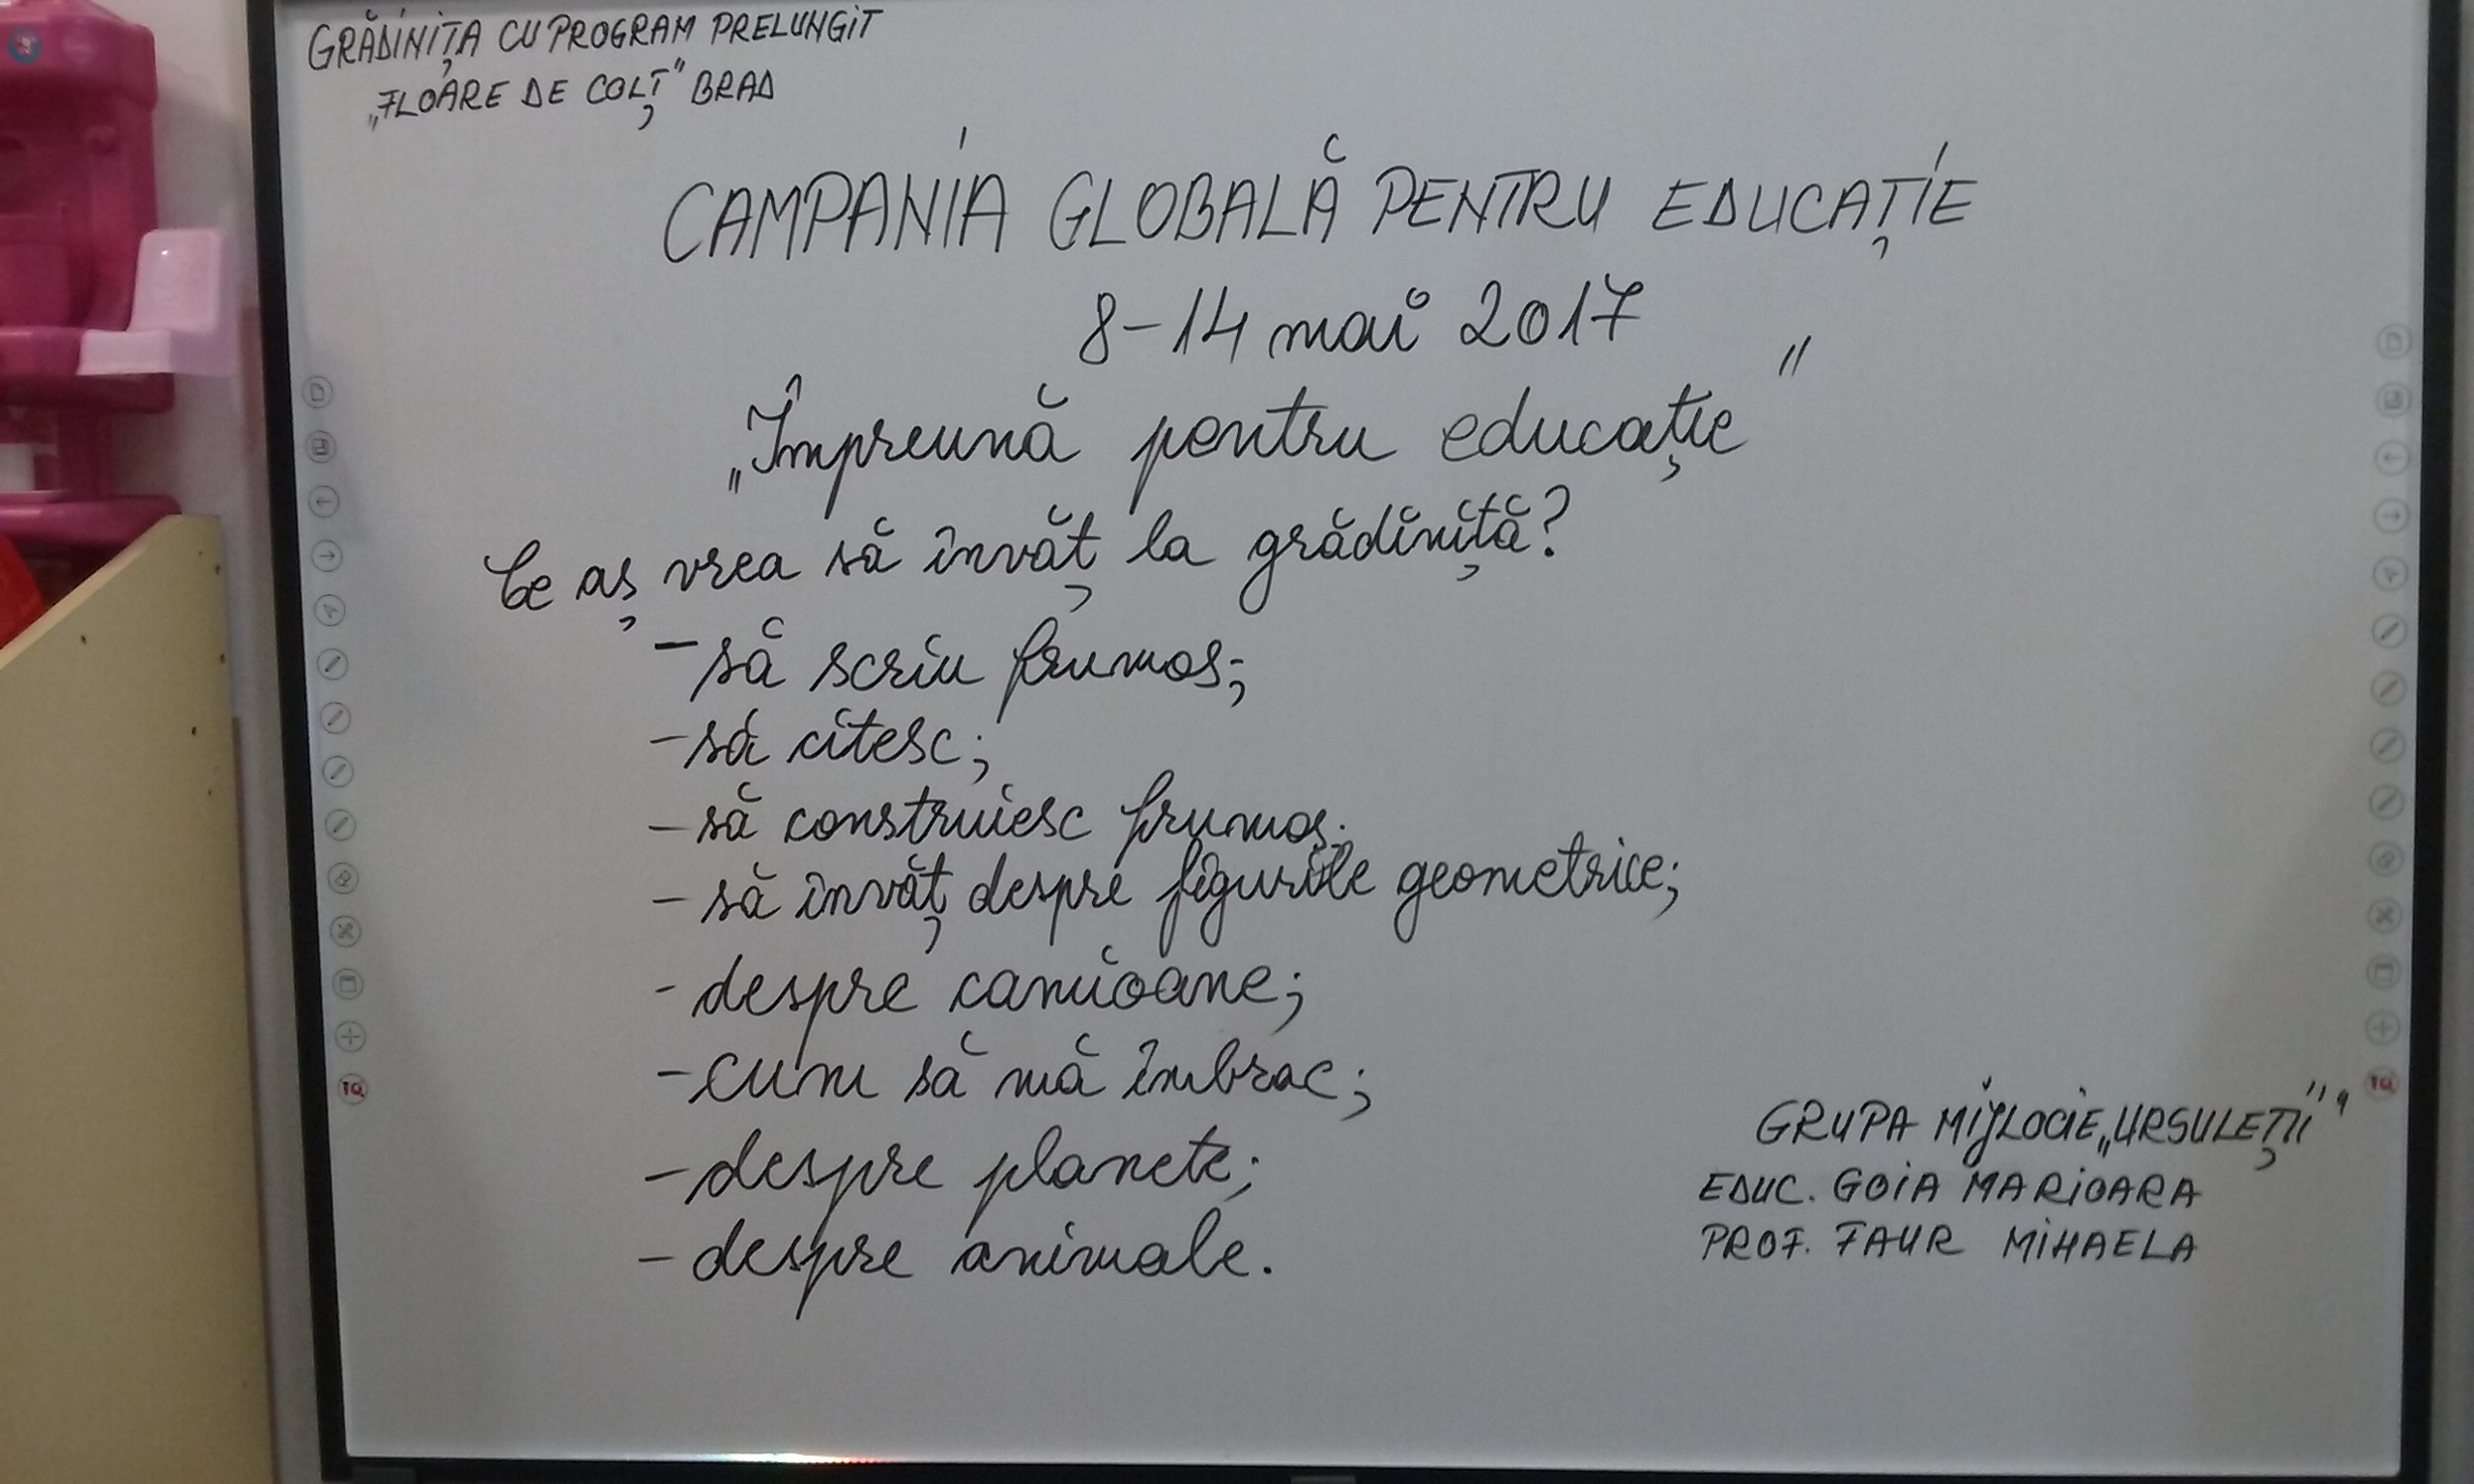 GRĂDINIȚA CU PROGRAM PRELUNGIT
„FLOARE DE COLȚ" BRAD
CAMPANIA GLOBALĂ PENTRU EDUCAȚIE
8-14 mai 2017
„Împreună pentru educație"
Ce aș vrea să învăț la grădiniță?
- să scriu frumos;
- să citesc;
- să construiesc frumos;
- să învăț despre figurile geometrice;
- despre camioane;
- cum să mă îmbrac;
- despre planete;
- despre animale.
GRUPA MIJLOCIE „URSULEȚII"
EDUC. GOIA MARIOARA
PROF. FAUR MIHAELA